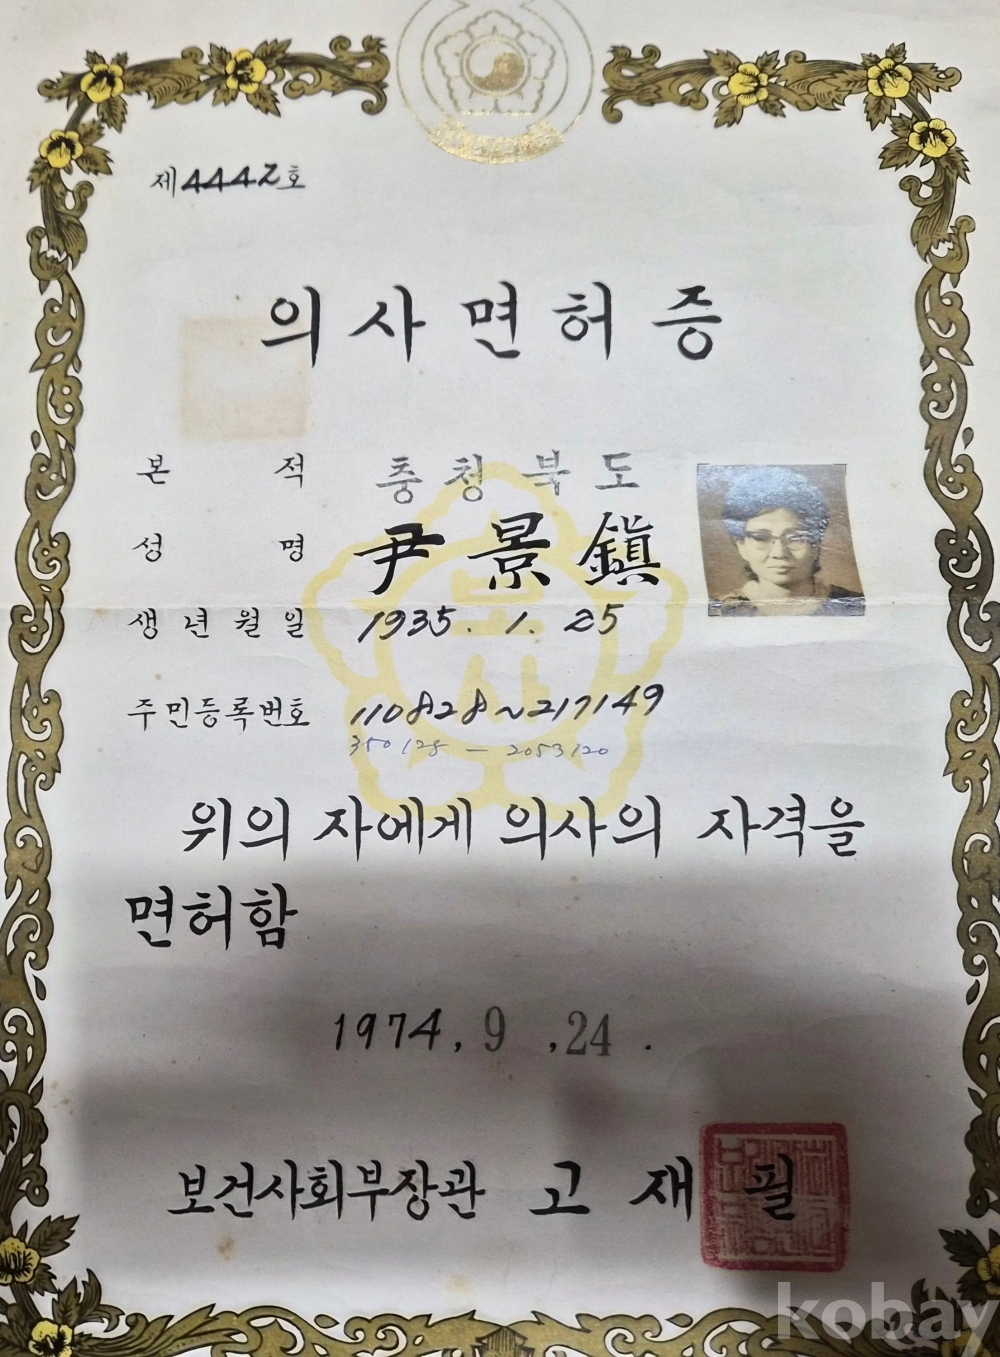 제4442호
의사면허증
본적 충청북도
성명 尹景鎭
생년월일 1935. 1. 25
주민등록번호 110828~217149
350128 - 2053120
위의 자에게 의사의 자격을
면허함
1974. 9 .24 .
보건사회부장관 고재필
kobay